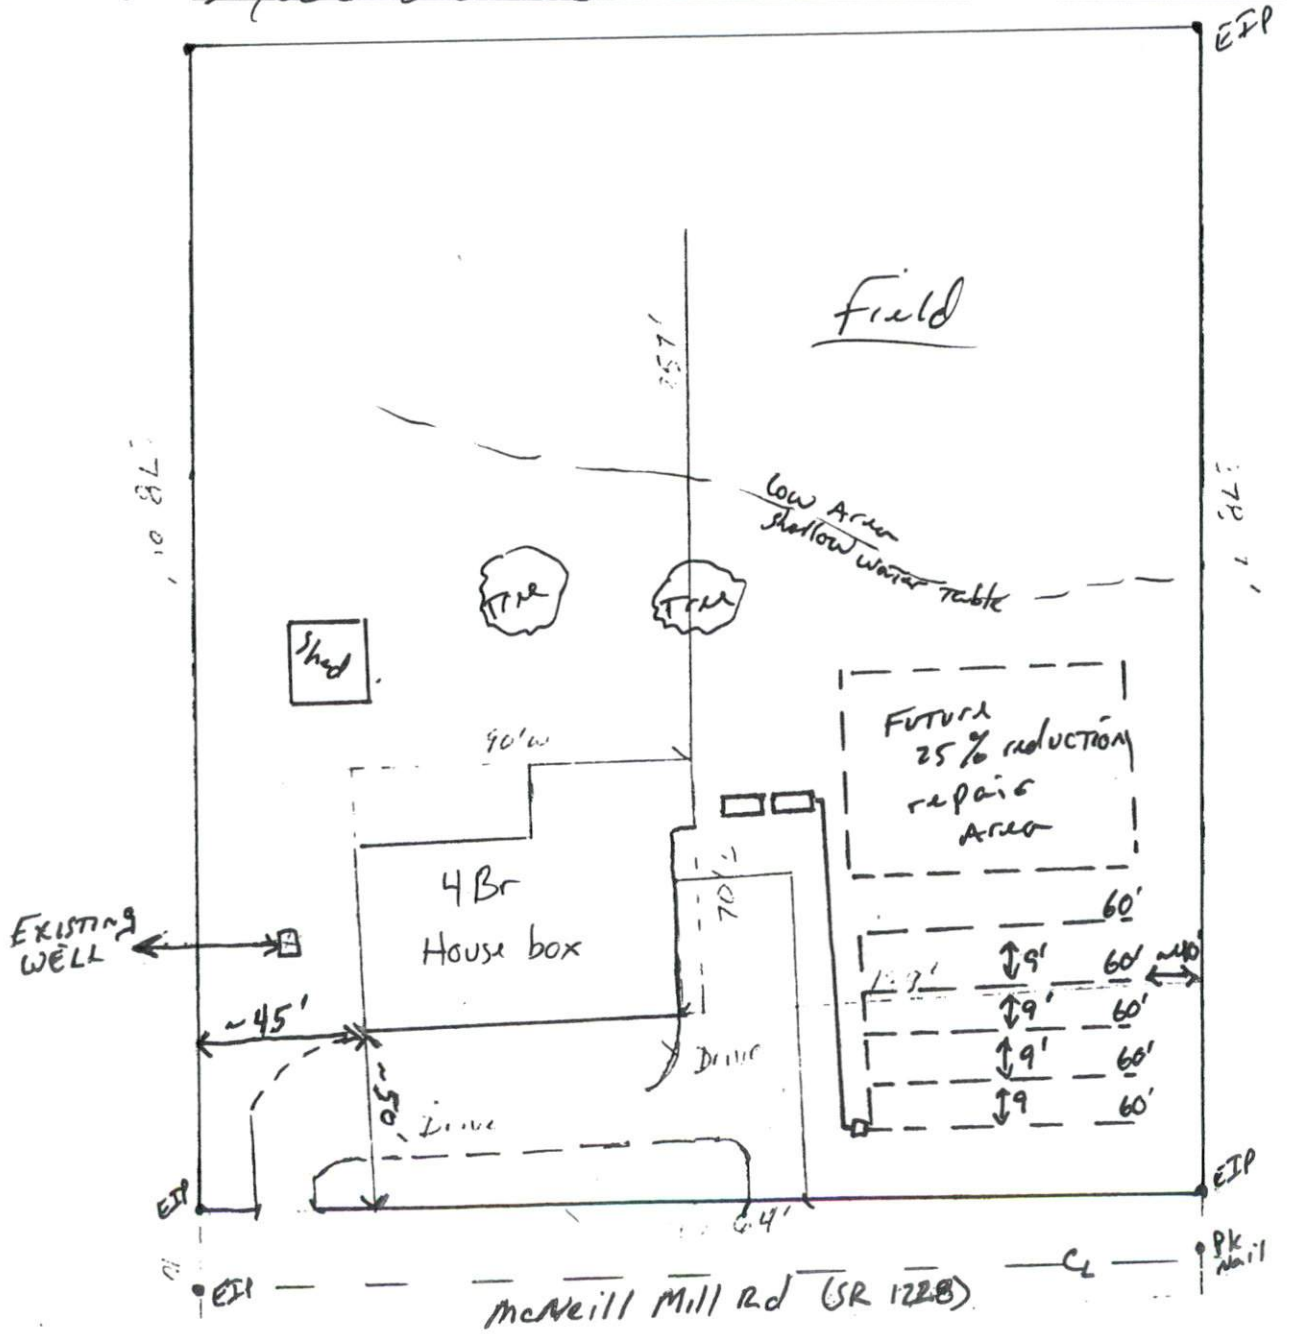 EIP
Field
257'
Low Area
Shallow Water Table
Tree
Tree
Shed
90'w
Future
25% reduction
repair
Area
70'
4Br
House box
EXISTING
WELL
60'
9'
60'
~40'
9'
60'
9'
60'
9
60'
~45'
~50'
Drive
Drive
EIP
EIP
64'
PK
Nail
CL
EIP
McNeill Mill Rd (SR 1228)